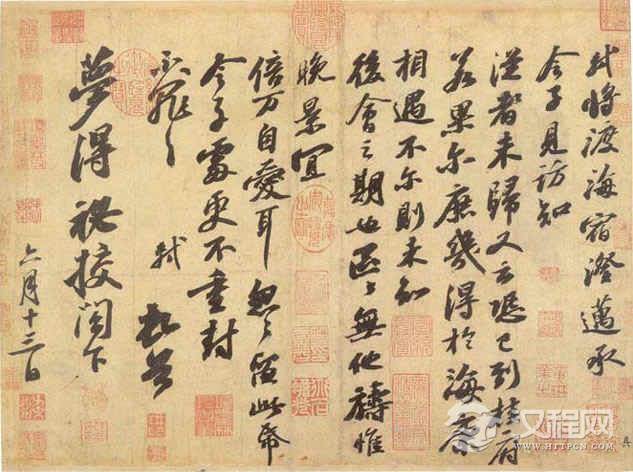 軾將渡海宿澄邁承
令子見訪知
從者未歸又云恐已到桂府
若果尔庶幾得於海康
相遇不尔則未知
後會之期也區々無他禱惟
晚景宜
倍万自愛耳忽々留此帋
令子處更不重封
不罪々
軾 頓首
夢得祕校閤下
六月十三日
汉程网
WWW.HTTPCN.COM